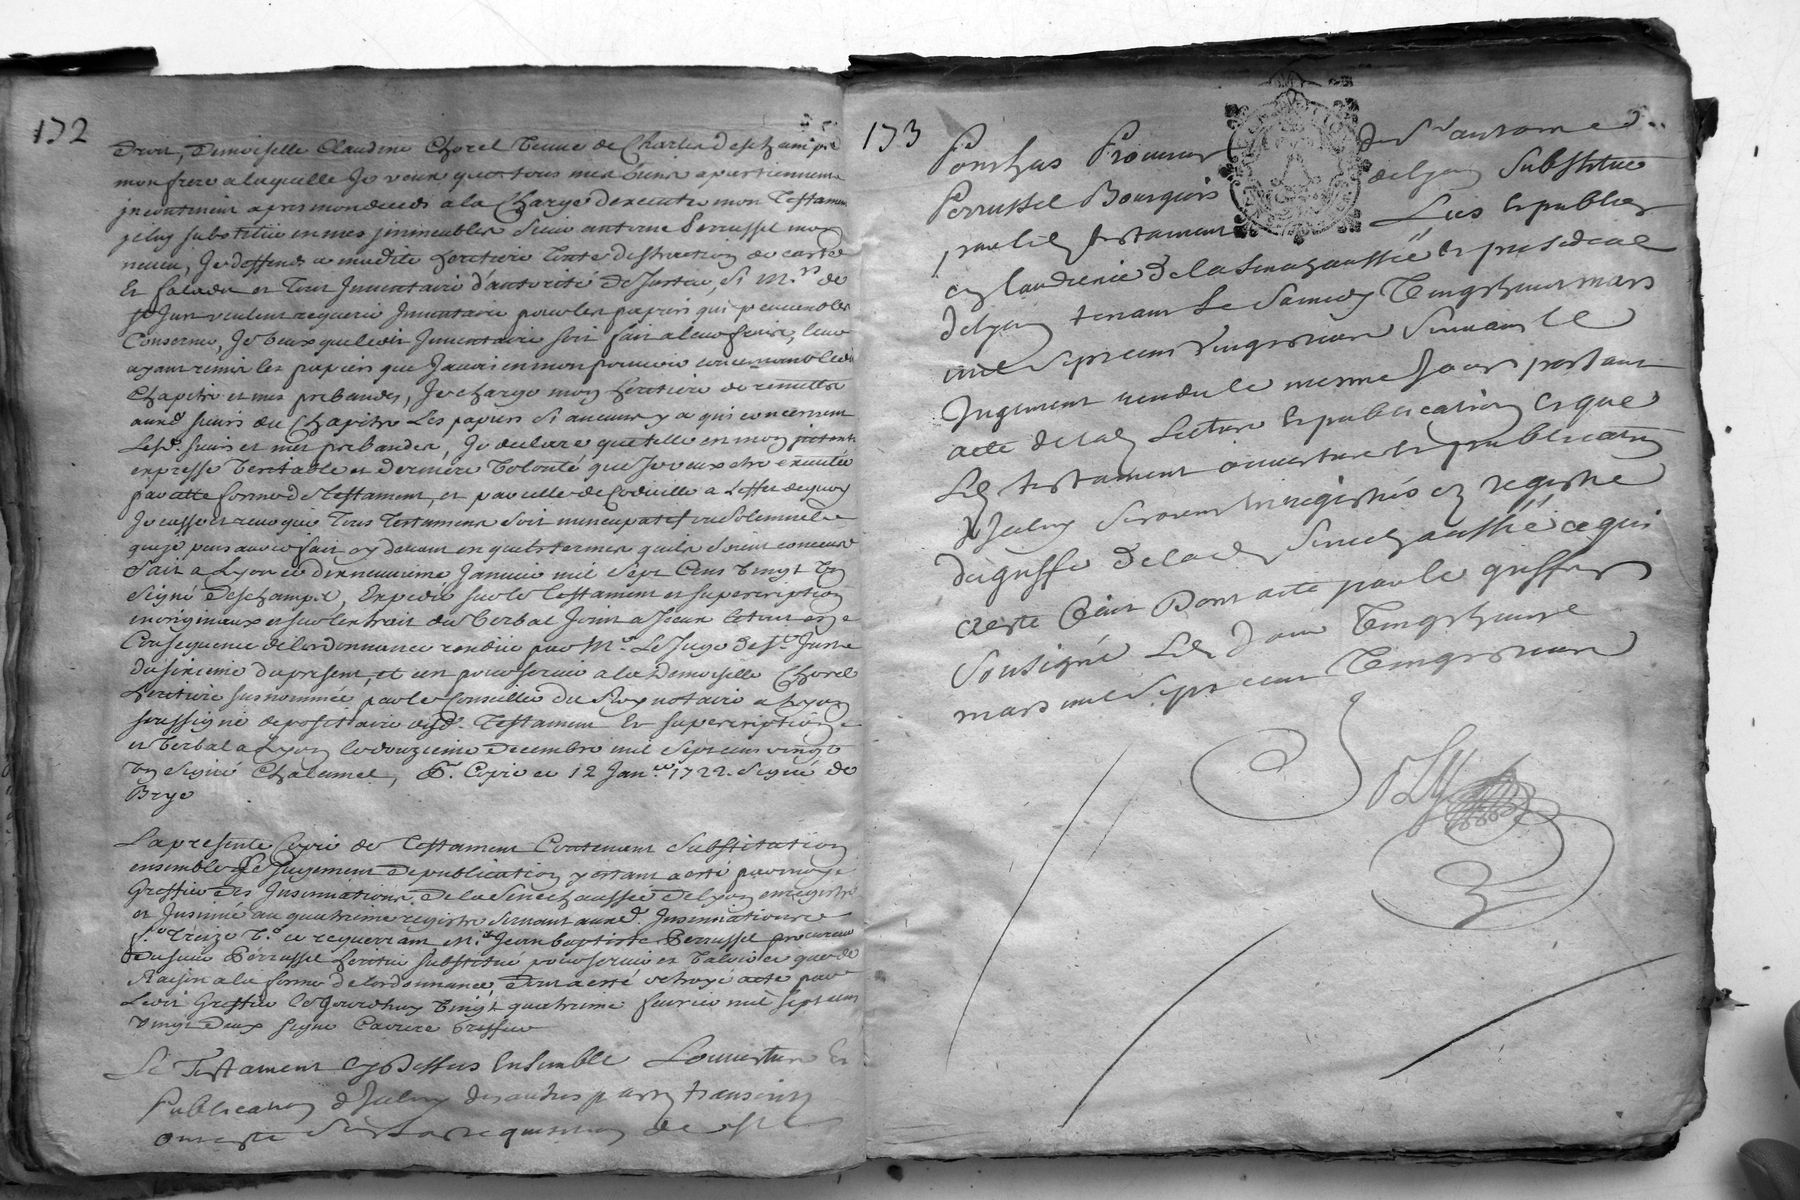 172
droit, Demoiselle Claudine Chorel veuve de Charles Deschamps
mon frere a laquelle Je veux que tous mes biens apartiennent
incontinent apres mon deceds a la Charge d'executer mon Testament
je luy substitue en mes immeubles Sieur antoine Perrussel mon
neveu, Je deffends a madite heritiere toute distraction de carte
Et falcidie et tout Inventaire d'autorité de Justice, Si Mrs de
St Just veulent requerir Inventaire pour les papiers qui peuvent les
Conserner, Je veux que ledit Inventaire soit fait a leur fraix, leur
ayant remis les papiers que J'avois en mon pouvoir concernant led.
Chapitre et mes prebandes, Je charge mon heritiere de remettre
auxd. sieurs du Chapitre Les papiers Si aucuns y a qui concernent
Lesd. sieurs et mes prebandes, Je declare que telle est mon
expresse veritable et derniere volonté que Je veux etre executée
par cette forme de testament, et par celle de Codicille a L'effet de quoy
Je casse et revoque tous Testamens soit nuncupatif ou Solemnel
que je peus avoir fait cy devant en quels termes qu'ils soient conceus
Fait a Lyon ce dixneuvieme Janvier mil sept Cens vingt un
Signé Deschamps, Expedié sur le Testament et superscription
originaux et sur l'extrait du verbal Joint a Iceux le tout en
Consequence de l'ordonnance rendue par Mr. Le Juge de St. Juste
du sixieme du present, et ce pour servir a la Demoiselle Chorel
heritiere susnommée par le Conseiller du Roy notaire a Lyon
soussigné depositaire dud. Testament Et superscription
et verbal a Lyon le douzieme Decembre mil sept cens vingt
un Signé Chalumel, Pr. Copie ce 12 Janer 1722. Signé de
Brye
La presente Copie de Testament Contenant Substitution
ensemble Le Jugement de publication y estant a esté par moy
Greffier des Insinuations de la Senechaussée de Lyon enregistré
et Insinué au quatrieme registre servant auxd. Insinuations
fo. treize vo. ce requerrant Me. Jean baptiste Perrussel procureur
du sieur Perrussel heritier substitué pour servir et valoir ce que de
Raison a la forme de l'ordonnance, dont a esté octroyé acte par
Ledit Greffier Ce Jourdhuy vingt quatrieme fevrier mil sept cens
vingt deux signé Cavure Greffier
Le Testament cy Dessus Ensemble Louverture Et
Publication d'Iceluy des autres parts transcrits
ont esté Sur La requisition de Me
173
Ponthus Procureur de Sr antoine
Perrussel Bourgeois de Lyon Substitué
par led testament Lus et publiés
en laudience de la Senechaussée et presidial
de Lyon tenant Le Samedy vingt huit mars
mil sept cens vingt deux Suivant Le
Jugement rendu le mesme Jour portant
acte de lad Lecture et publication et que
Led testament ouverture et publication
d'Iceluy Seroient enregistrés es registre
du greffe de lad Senechaussée ce qui
a esté fait Dont acte par le greffier
Sousigné Led Jour vingt huit
mars mil Sept cens vingt deux